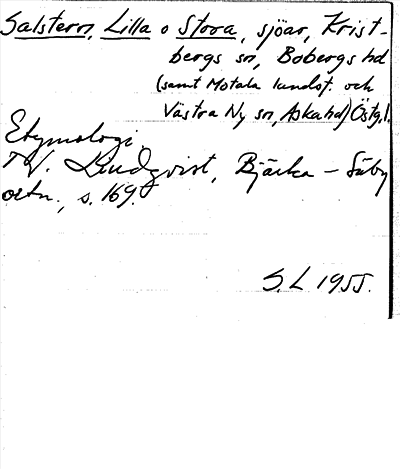 Salstern, Lilla o Stora, sjöar, Krist-
bergs sn, Bobergs hd
(samt Motala landsf. och
Västra Ny sn, Aska hd) Östg.l.
Etymologi.
N. Lindqvist, Bjärka-Säby
ortn., s. 169.
S.L 1955.